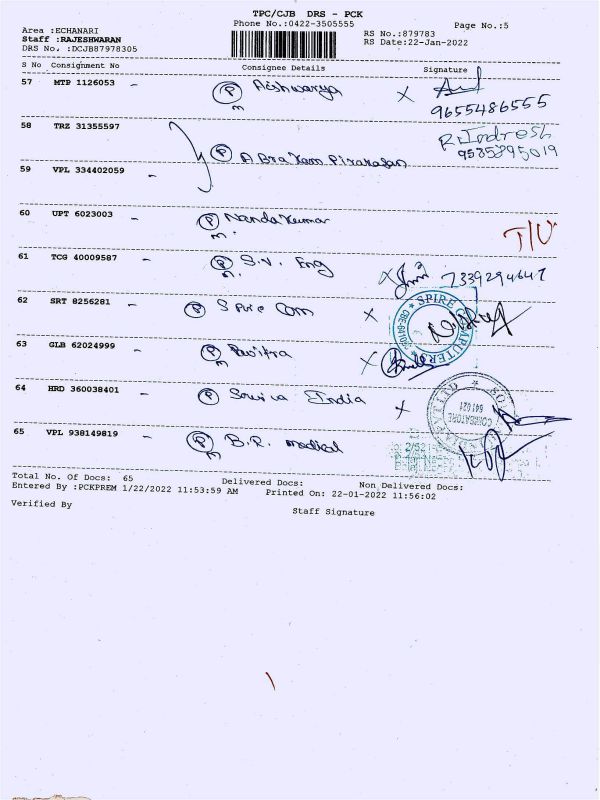 TPC/CJB DRS - PCK
Phone No.:0422-3505555
Page No.:5
Area :ECHANARI
Staff :RAJESHWARAN
DRS No. :DCJB87978305
RS No.:879783
RS Date:22-Jan-2022
S No Consignment No Consignee Details Signature
57 MTP 1126053 - P Aishwarya X
m 9655486555
58 TRZ 31355597
P A Bra Kam Pirakasan
59 VPL 334402059 -
60 UPT 6023003 - P Nanda Kumar
m T/U
61 TCG 40009587 - P S.V. Eng X 7339294647
m
62 SRT 8256281 - P Spire Com X
SPIRE COMPUTERS
63 GLB 62024999 - P Pavitra X
m
64 HRD 360038401 - P India X
COIMBATORE
641 021
65 VPL 938149819 - P B.R. medical
m
Total No. Of Docs: 65 Delivered Docs: Non Delivered Docs:
Entered By :PCKPREM 1/22/2022 11:53:59 AM Printed On: 22-01-2022 11:56:02
Verified By Staff Signature